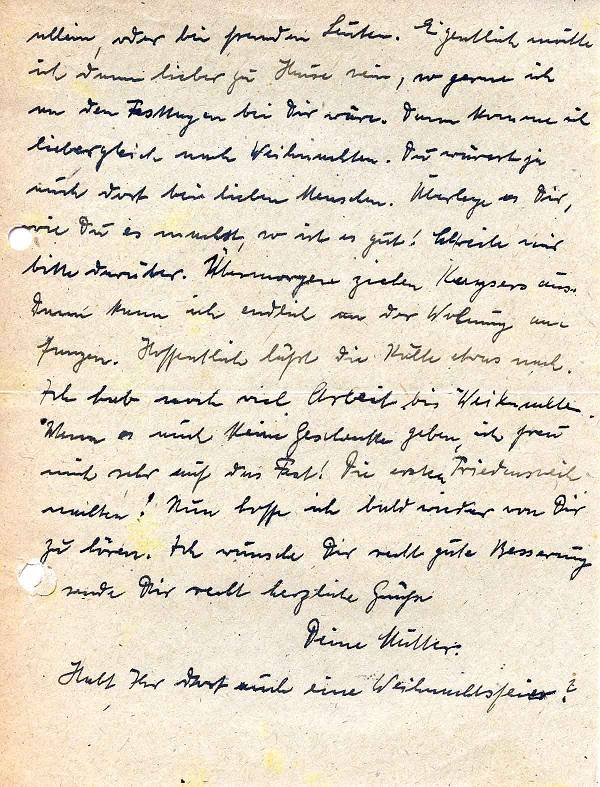 allein, oder bei fremden Leuten. Eigentlich müßte
ich dann lieber zu Hause sein, so gerne ich
an den Festtagen bei Dir wäre. Dann komme ich
lieber gleich nach Weihnachten. Du wärest ja
auch dort bei lieben Menschen. Überlege es Dir,
wie Du es machst, so ist es gut! Schreibe mir
bitte darüber. Übermorgen ziehen Kaysers aus.
Dann kann ich endlich an der Wohnung an-
fangen. Hoffentlich läßt die Kälte etwas nach.
Ich hab noch viel Arbeit bis Weihnachten.
Wenn es auch keine Geschenke geben, ich freu
mich sehr auf das Fest! Die ersten Friedensweih-
nachten! Nun hoffe ich bald wieder von Dir
zu hören. Ich wünsche Dir recht gute Besserung
sende Dir recht herzliche Grüße
Deine Mutter.
Habt Ihr dort auch eine Weihnachtsfeier?